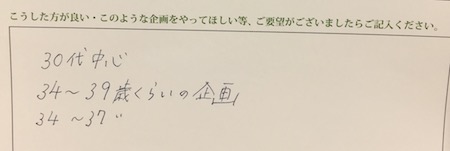 こうした方が良い・このような企画をやってほしい等、ご要望がございましたらご記入ください。
30代中心
34〜39歳くらいの企画
34〜37〃